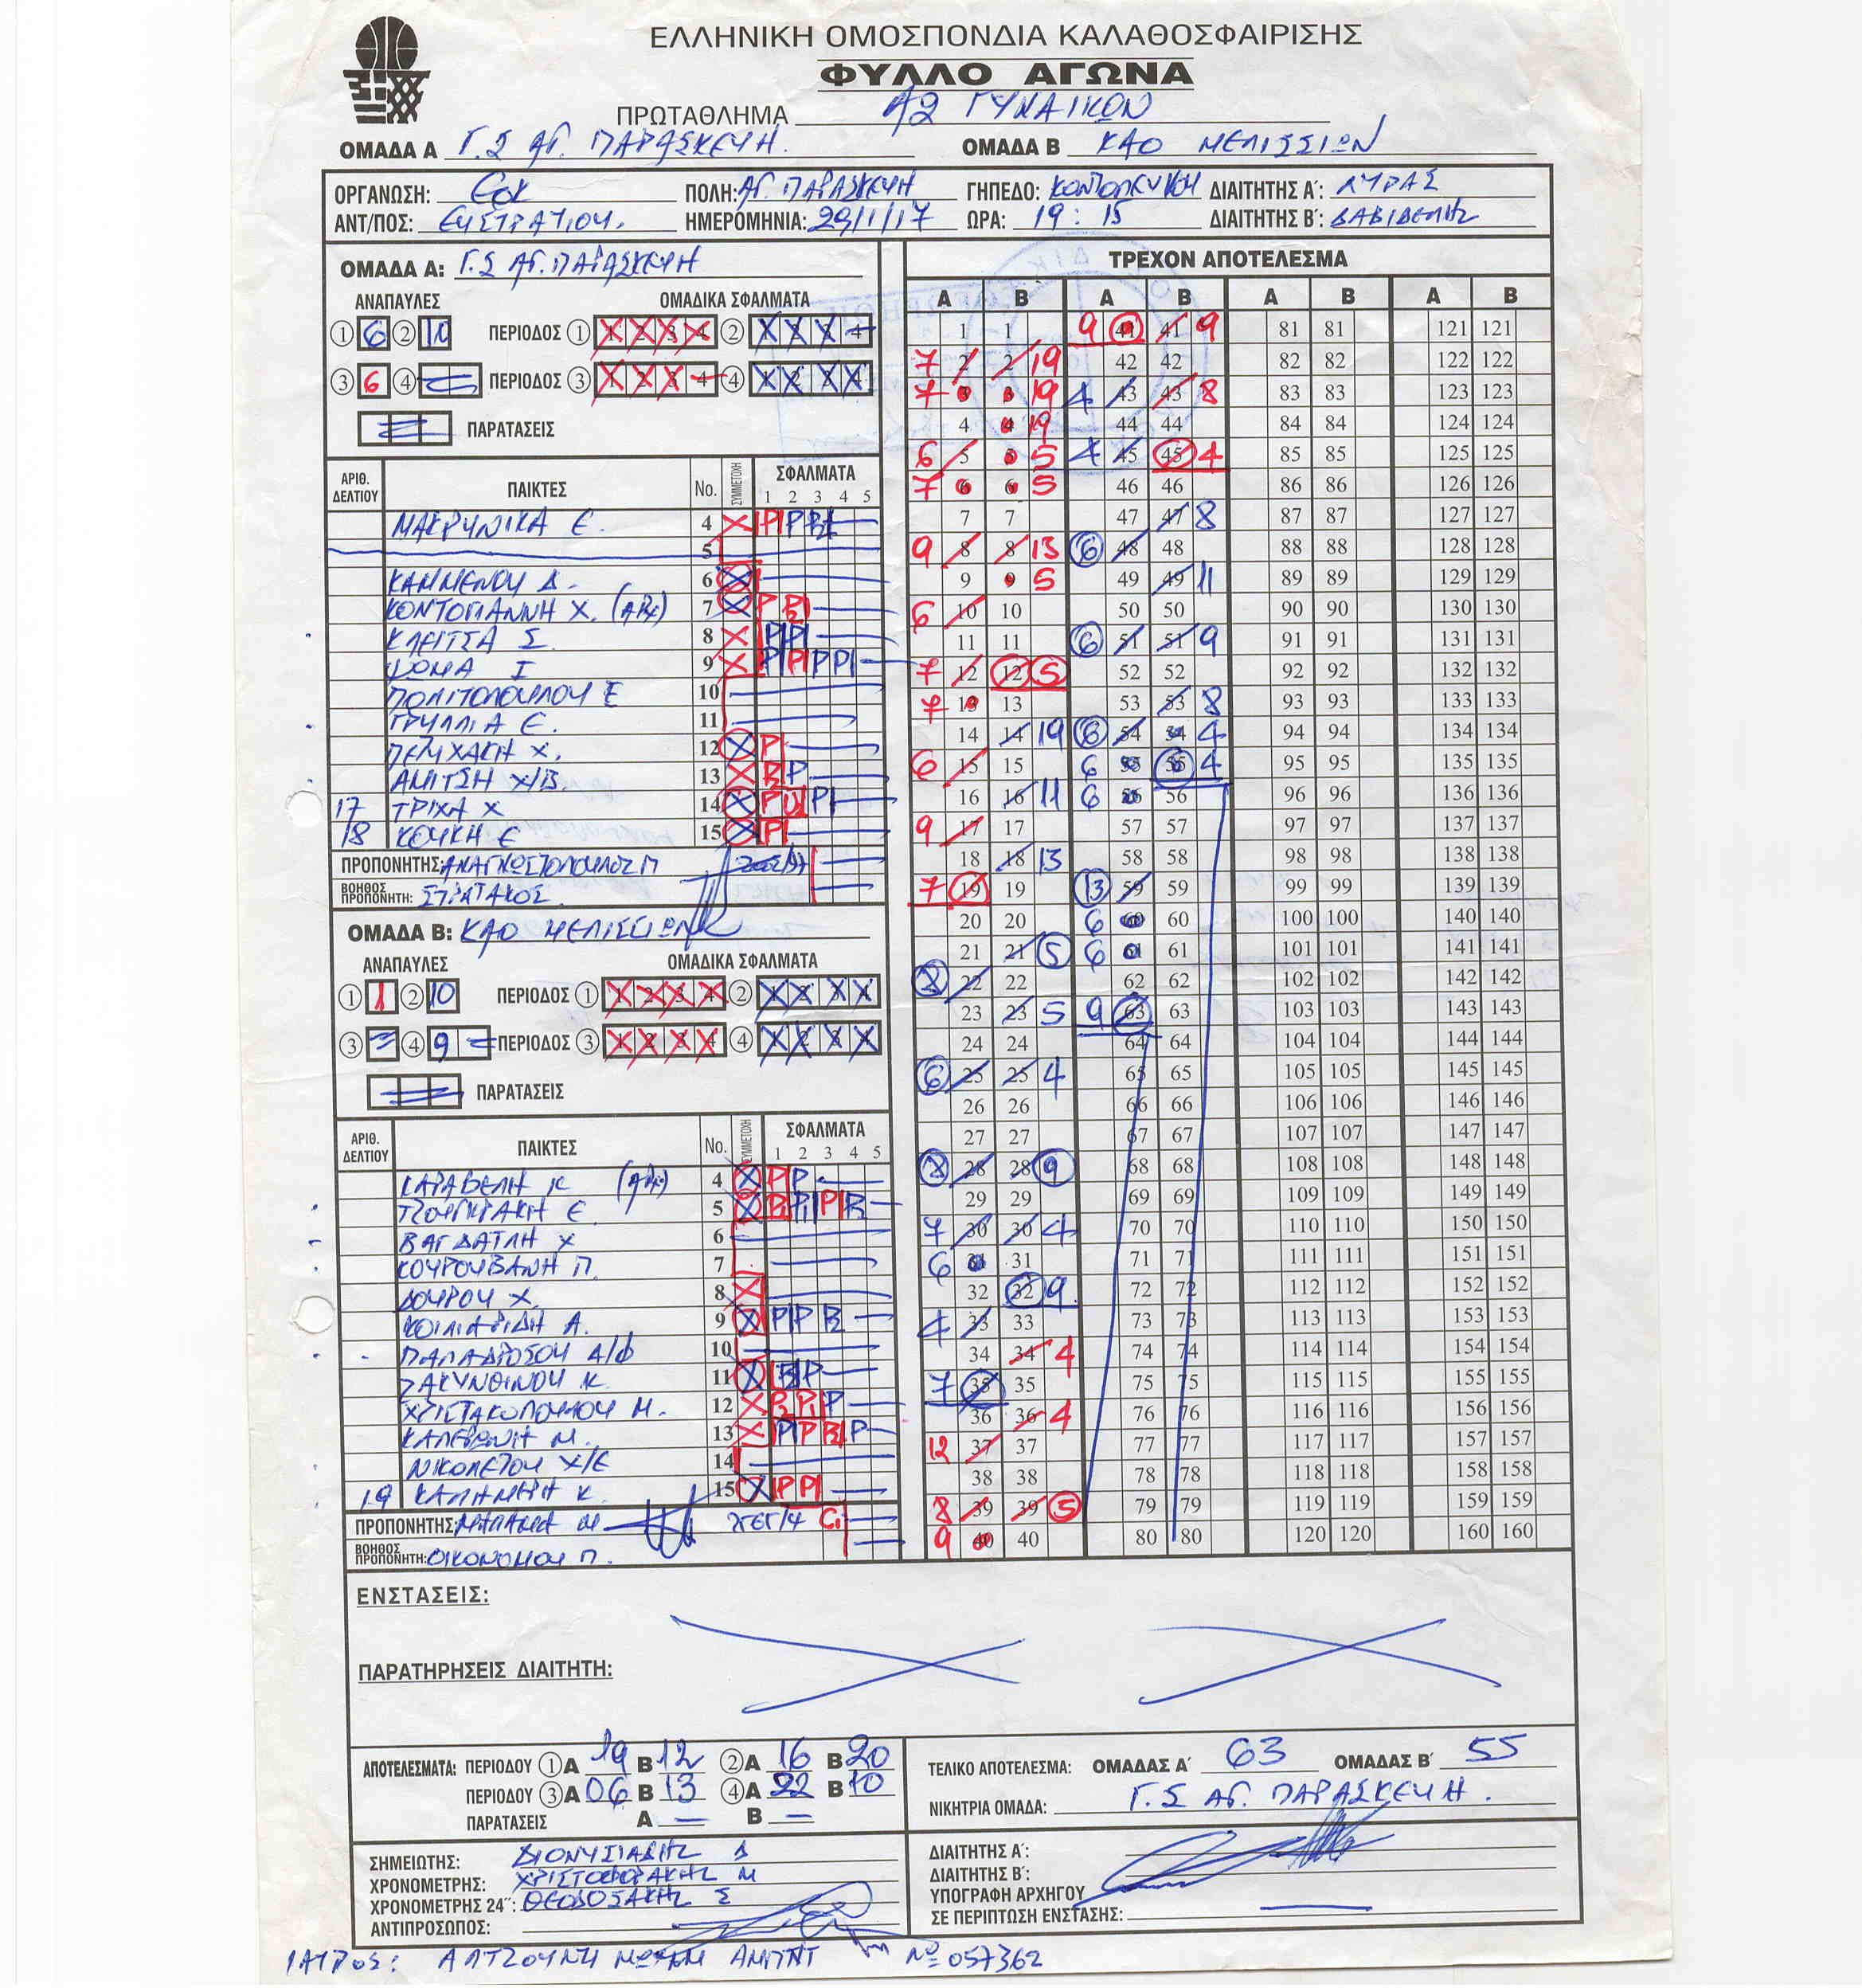 ΕΛΛΗΝΙΚΗ ΟΜΟΣΠΟΝΔΙΑ ΚΑΛΑΘΟΣΦΑΙΡΙΣΗΣ
ΦΥΛΛΟ ΑΓΩΝΑ
ΠΡΩΤΑΘΛΗΜΑ Α2 ΓΥΝΑΙΚΩΝ
ΟΜΑΔΑ Α Γ.Σ ΑΓ. ΠΑΡΑΣΚΕΥΗ. ΟΜΑΔΑ Β ΚΑΟ ΜΕΛΙΣΣΙΩΝ
ΟΡΓΑΝΩΣΗ: ΕΟΚ ΠΟΛΗ: ΑΓ. ΠΑΡΑΣΚΕΥΗ ΓΗΠΕΔΟ: ΚΟΝΤΟΠΕΥΚΟΥ ΔΙΑΙΤΗΤΗΣ Α΄: ΛΥΡΑΣ
ΑΝΤ/ΠΟΣ: ΕΥΣΤΡΑΤΙΟΥ. ΗΜΕΡΟΜΗΝΙΑ: 29/1/17 ΩΡΑ: 19:15 ΔΙΑΙΤΗΤΗΣ Β΄: ΔΑΒΙΔΕΛΗΣ
ΟΜΑΔΑ Α: Γ.Σ ΑΓ. ΠΑΡΑΣΚΕΥΗ
ΑΝΑΠΑΥΛΕΣ ΟΜΑΔΙΚΑ ΣΦΑΛΜΑΤΑ
1 6 2 10 ΠΕΡΙΟΔΟΣ 1 1 2 3 4 2 1 2 3 4
3 6 4 ΠΕΡΙΟΔΟΣ 3 1 2 3 4 4 1 2 3 4
ΠΑΡΑΤΑΣΕΙΣ
ΑΡΙΘ. ΔΕΛΤΙΟΥ ΠΑΙΚΤΕΣ No. ΣΥΜΜΕΤΟΧΗ ΣΦΑΛΜΑΤΑ 1 2 3 4 5
ΜΑΚΡΥΝΙΚΑ Ε. 4
5
ΚΑΜΜΕΝΟΥ Δ. 6
ΚΟΝΤΟΓΙΑΝΝΗ Χ. (ΑΡΧ) 7
ΚΛΕΙΤΣΑ Σ 8
ΨΩΜΑ Ι 9
ΠΟΛΙΤΟΠΟΥΛΟΥ Ε 10
ΓΡΥΛΛΙΑ Ε. 11
Χ. 12
ΑΛΙΤΣΗ Χ/Β. 13
17 ΤΡΙΧΑ Χ 14
18 ΚΟΥΚΗ Ε 15
ΠΡΟΠΟΝΗΤΗΣ: ΑΝΑΓΝΩΣΤΟΠΟΥΛΟΣ Π
ΒΟΗΘΟΣ ΠΡΟΠΟΝΗΤΗ: ΣΤΡΑΤΑΚΟΣ
ΟΜΑΔΑ Β: ΚΑΟ ΜΕΛΙΣΣΙΩΝ
ΑΝΑΠΑΥΛΕΣ ΟΜΑΔΙΚΑ ΣΦΑΛΜΑΤΑ
1 1 2 10 ΠΕΡΙΟΔΟΣ 1 1 2 3 4 2 1 2 3 4
3 4 9 ΠΕΡΙΟΔΟΣ 3 1 2 3 4 4 1 2 3 4
ΠΑΡΑΤΑΣΕΙΣ
ΑΡΙΘ. ΔΕΛΤΙΟΥ ΠΑΙΚΤΕΣ No. ΣΥΜΜΕΤΟΧΗ ΣΦΑΛΜΑΤΑ 1 2 3 4 5
ΚΑΡΑΒΕΛΗ Κ (ΑΡΧ) 4
ΤΖΟΥΓΚΡΑΚΗ Ε. 5
ΒΑΓΔΑΤΛΗ Χ 6
ΚΟΥΡΟΥΒΑΝΗ Π. 7
ΔΟΥΡΟΥ Χ. 8
ΚΟΙΛΙΑΡΙΔΗ Α. 9
ΠΑΠΑΔΡΟΣΟΥ Α/Φ 10
ΖΑΚΥΝΘΙΝΟΥ Κ. 11
ΧΡΙΣΤΑΚΟΠΟΥΛΟΥ Μ. 12
Μ. 13
ΝΙΚΟΛΕΤΟΥ Χ/Ε 14
19 ΚΑΛΗΜΕΡΗ Κ. 15
ΠΡΟΠΟΝΗΤΗΣ:
ΒΟΗΘΟΣ ΠΡΟΠΟΝΗΤΗ: ΟΙΚΟΝΟΜΟΥ Π.
ΤΡΕΧΟΝ ΑΠΟΤΕΛΕΣΜΑ
Α Β Α Β Α Β Α Β
1 1 9 41 41 9 81 81 121 121
7 2 2 19 42 42 82 82 122 122
7 3 3 19 4 43 43 8 83 83 123 123
4 4 19 44 44 84 84 124 124
6 5 5 5 4 45 45 4 85 85 125 125
7 6 6 5 46 46 86 86 126 126
7 7 47 47 8 87 87 127 127
9 8 8 13 6 48 48 88 88 128 128
9 9 5 49 49 11 89 89 129 129
6 10 10 50 50 90 90 130 130
11 11 6 51 51 9 91 91 131 131
7 12 12 5 52 52 92 92 132 132
7 13 13 53 53 8 93 93 133 133
14 14 19 6 54 54 4 94 94 134 134
6 15 15 6 55 55 4 95 95 135 135
16 16 11 6 56 56 96 96 136 136
9 17 17 57 57 97 97 137 137
18 18 13 58 58 98 98 138 138
7 19 19 13 59 59 99 99 139 139
20 20 6 60 60 100 100 140 140
21 21 5 6 61 61 101 101 141 141
8 22 22 62 62 102 102 142 142
23 23 5 9 63 63 103 103 143 143
24 24 64 64 104 104 144 144
6 25 25 4 65 65 105 105 145 145
26 26 66 66 106 106 146 146
27 27 67 67 107 107 147 147
8 28 28 9 68 68 108 108 148 148
29 29 69 69 109 109 149 149
7 30 30 4 70 70 110 110 150 150
6 31 31 71 71 111 111 151 151
32 32 9 72 72 112 112 152 152
4 33 33 73 73 113 113 153 153
34 34 4 74 74 114 114 154 154
7 35 35 75 75 115 115 155 155
36 36 4 76 76 116 116 156 156
12 37 37 77 77 117 117 157 157
38 38 78 78 118 118 158 158
8 39 39 5 79 79 119 119 159 159
9 40 40 80 80 120 120 160 160
ΕΝΣΤΑΣΕΙΣ:
ΠΑΡΑΤΗΡΗΣΕΙΣ ΔΙΑΙΤΗΤΗ:
ΑΠΟΤΕΛΕΣΜΑΤΑ: ΠΕΡΙΟΔΟΥ 1 Α 19 Β 12 2 Α 16 Β 20
ΠΕΡΙΟΔΟΥ 3 Α 06 Β 13 4 Α 22 Β 10
ΠΑΡΑΤΑΣΕΙΣ Α — Β —
ΤΕΛΙΚΟ ΑΠΟΤΕΛΕΣΜΑ: ΟΜΑΔΑΣ Α΄ 63 ΟΜΑΔΑΣ Β΄ 55
ΝΙΚΗΤΡΙΑ ΟΜΑΔΑ: Γ.Σ ΑΓ. ΠΑΡΑΣΚΕΥΗ.
ΣΗΜΕΙΩΤΗΣ: ΔΙΟΝΥΣΙΑΔΗΣ Δ
ΧΡΟΝΟΜΕΤΡΗΣ: ΧΡΙΣΤΟΦΟΡΑΚΗΣ Μ
ΧΡΟΝΟΜΕΤΡΗΣ 24'': ΘΕΟΔΟΣΑΚΗΣ Σ
ΑΝΤΙΠΡΟΣΩΠΟΣ:
ΔΙΑΙΤΗΤΗΣ Α΄:
ΔΙΑΙΤΗΤΗΣ Β΄:
ΥΠΟΓΡΑΦΗ ΑΡΧΗΓΟΥ
ΣΕ ΠΕΡΙΠΤΩΣΗ ΕΝΣΤΑΣΗΣ:
ΙΑΤΡΟΣ: ΑΛΤΖΟΥΝΗ Νο 057362